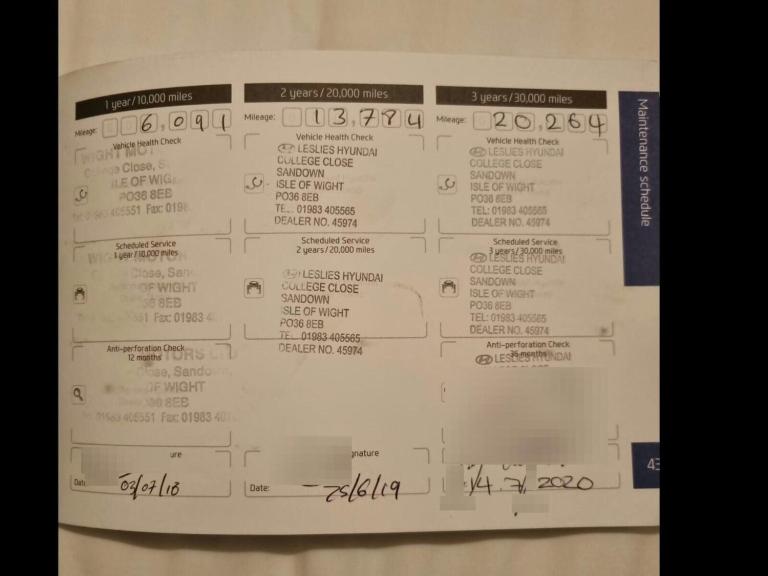 1 year/10,000 miles
Mileage: 6,091
Vehicle Health Check
WIGHT MOT
Close, S
ILE OF WIG
PO36 8EB
405551 Fax: 0198
Scheduled Service
1 year/10,000 miles
MOTOR
Close, San
OF WIGHT
36 8EB
551 Fax: 01983 4
Anti-perforation Check
12 months
TORS
ose, Sando
OF WIGHT
36 8EB
01983 405551 Fax: 01983 40
ure
Date
03/07/18
2 years/20,000 miles
Mileage: 13,784
Vehicle Health Check
LESLIES HYUNDAI
COLLEGE CLOSE
SANDOWN
ISLE OF WIGHT
PO36 8EB
TE 01983 405565
DEALER NO. 45974
Scheduled Service
2 years/20,000 miles
LESLIES HYUNDAI
COLLEGE CLOSE
SANDOWN
ISLE OF WIGHT
PO36 8EB
TE 01983 405565
DEALER NO. 45974
gnature
Date: 25/6/19
3 years/30,000 miles
Mileage: 20,264
Vehicle Health Check
LESLIES HYUNDAI
COLLEGE CLOSE
SANDOWN
ISLE OF WIGHT
PO36 8EB
TEL: 01983 405565
DEALER NO. 45974
Scheduled Service
3 years/30,000 miles
LESLIES HYUNDAI
COLLEGE CLOSE
SANDOWN
ISLE OF WIGHT
PO36 8EB
TEL: 01983 405565
DEALER NO. 45974
Anti-perforation Check
36 months
LESLIES HYUNDAI
14.7.2020
Maintenance schedule
43